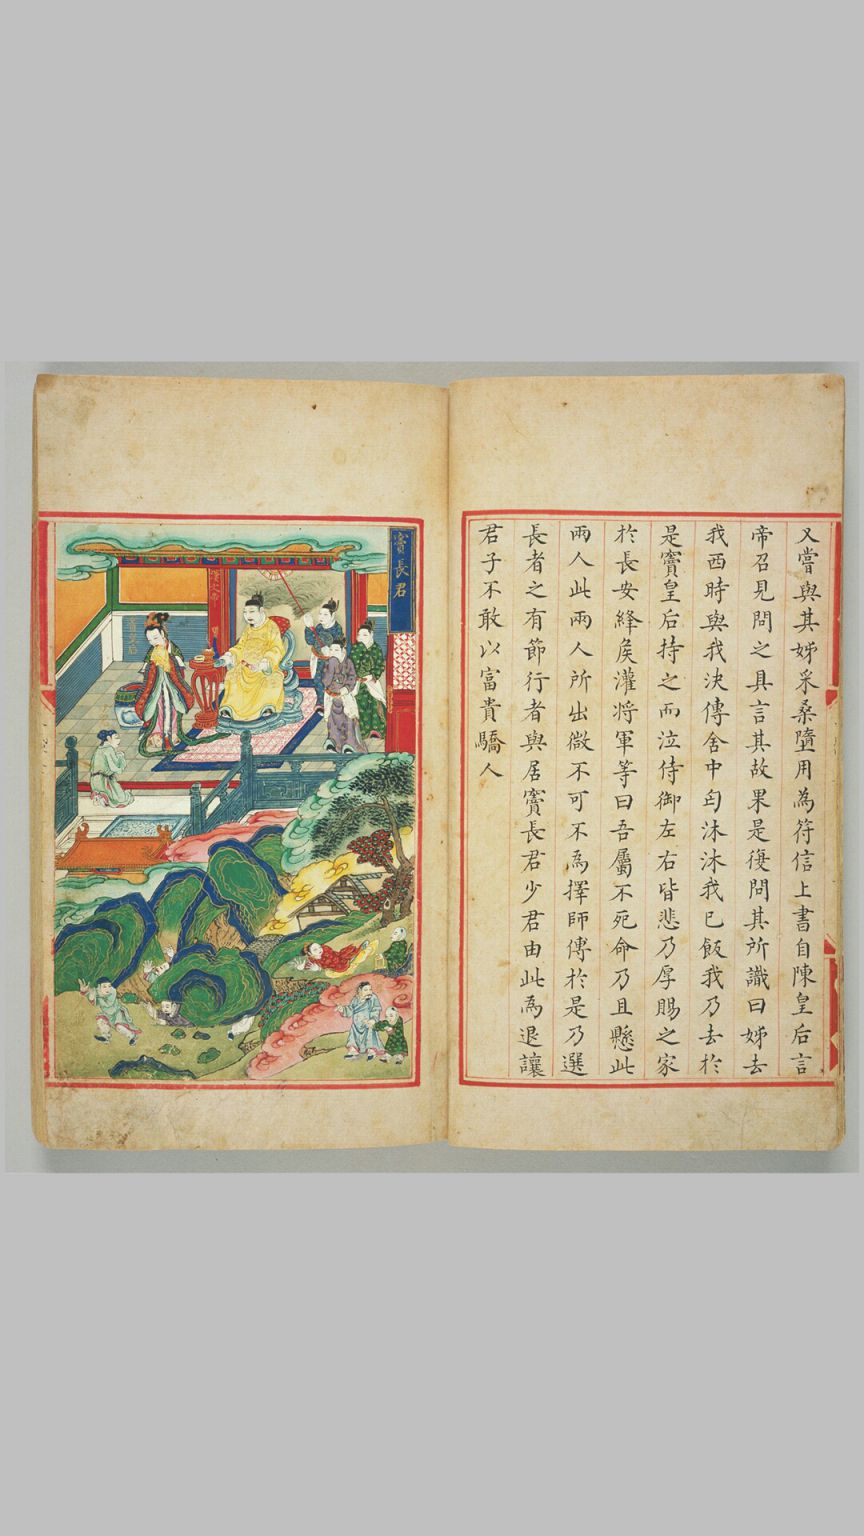 又嘗與其姊采桑墮用為符信上書自陳皇后言
帝召見問之具言其故果是復問其所識曰姊去
我西時與我決傳舍中匄沐沐我已飯我乃去於
是竇皇后持之而泣侍御左右皆悲乃厚賜之家
於長安絳侯灌將軍等曰吾屬不死命乃且懸此
兩人此兩人所出微不可不為擇師傅於是乃選
長者之有節行者與居竇長君少君由此為退讓
君子不敢以富貴驕人
竇長君
漢文帝
竇皇后